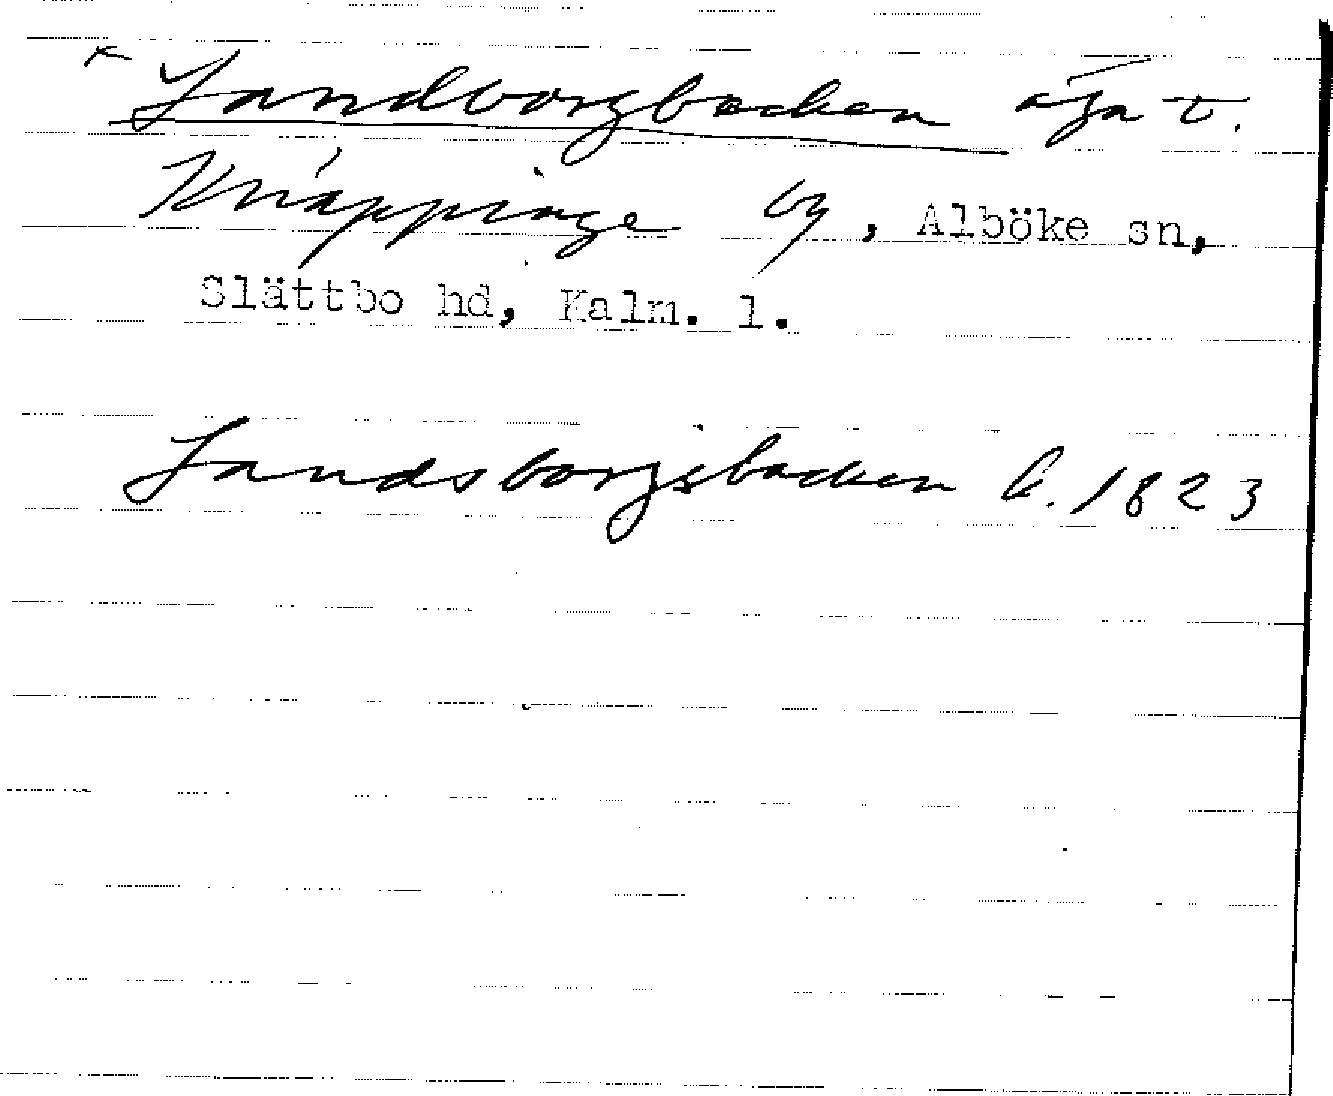 * Landborgbacken äga t.
Knäppinge by, Alböke sn,
Slättbo hd, Kalm. l.
Landsborgsbacken k. 1823